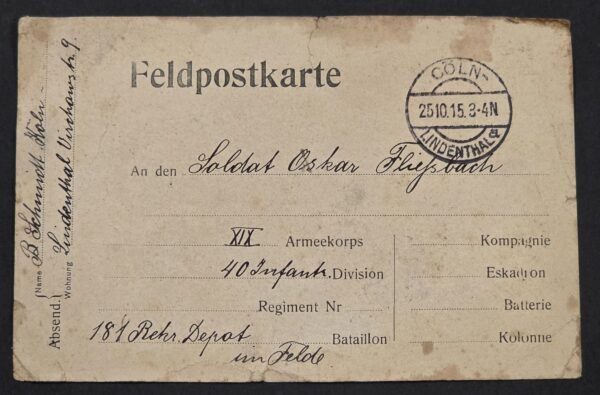 Feldpostkarte
CÖLN-
25.10.15.3-4N
LINDENTHAL
An den Soldat Oskar Fließbach
XIX Armeekorps
40 Infantr. Division
Regiment Nr
181 Rekr. Depot Bataillon
im Felde
Kompagnie
Eskadron
Batterie
Kolonne
Absend.
Name B Schmidt Köln-
Wohnung Lindenthal Virchowstr. 9.